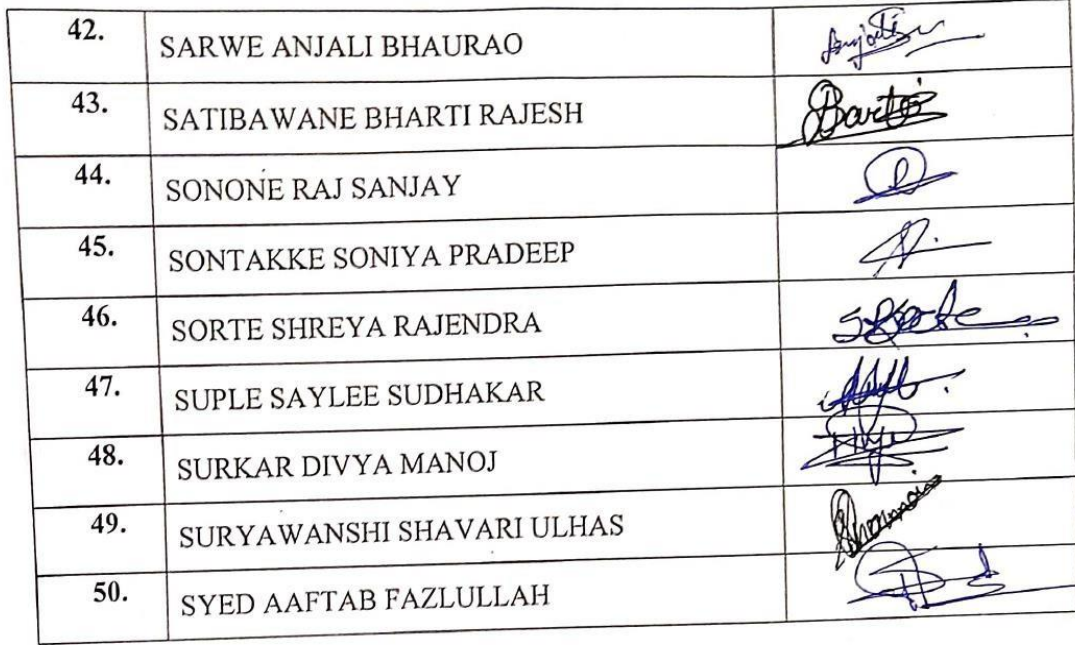 42. SARWE ANJALI BHAURAO
43. SATIBAWANE BHARTI RAJESH
44. SONONE RAJ SANJAY
45. SONTAKKE SONIYA PRADEEP
46. SORTE SHREYA RAJENDRA
47. SUPLE SAYLEE SUDHAKAR
48. SURKAR DIVYA MANOJ
49. SURYAWANSHI SHAVARI ULHAS
50. SYED AAFTAB FAZLULLAH